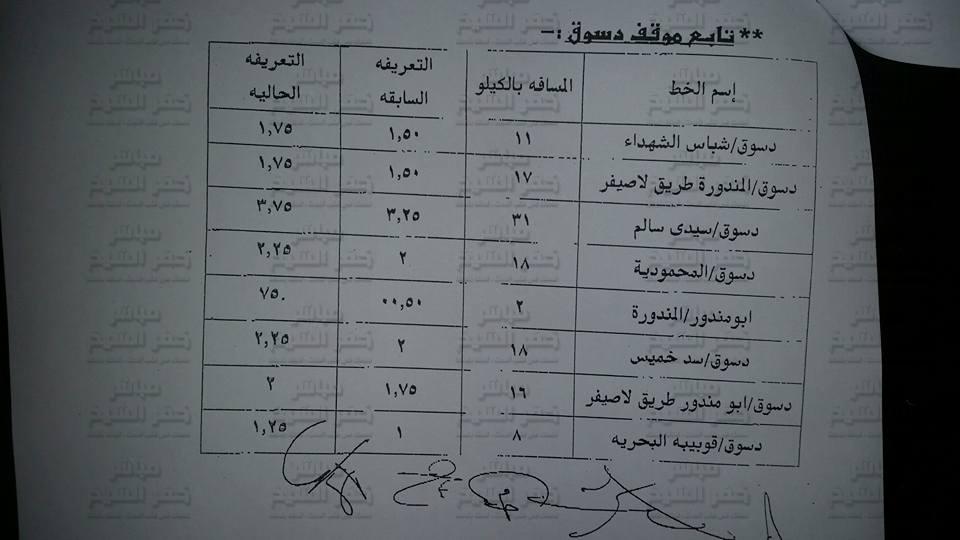 ** تابع موقف دسوق :-
إسم الخط المسافه بالكيلو التعريفه السابقه التعريفه الحاليه
دسوق/شباس الشهداء ١١ ١,٥٠ ١,٧٥
دسوق/المندورة طريق لاصيفر ١٧ ١,٥٠ ١,٧٥
دسوق/سيدى سالم ٣١ ٣,٢٥ ٣,٧٥
دسوق/المحمودية ١٨ ٢ ٢,٢٥
ابومندور/المندورة ٢ ٠٠,٥٠ ٧٥٠
دسوق/سد خميس ١٨ ٢ ٢,٢٥
دسوق/ابو مندور طريق لاصيفر ١٦ ١,٧٥ ٢
دسوق/قوبيبه البحريه ٨ ١ ١,٢٥
مباشر
كفر الشيخ